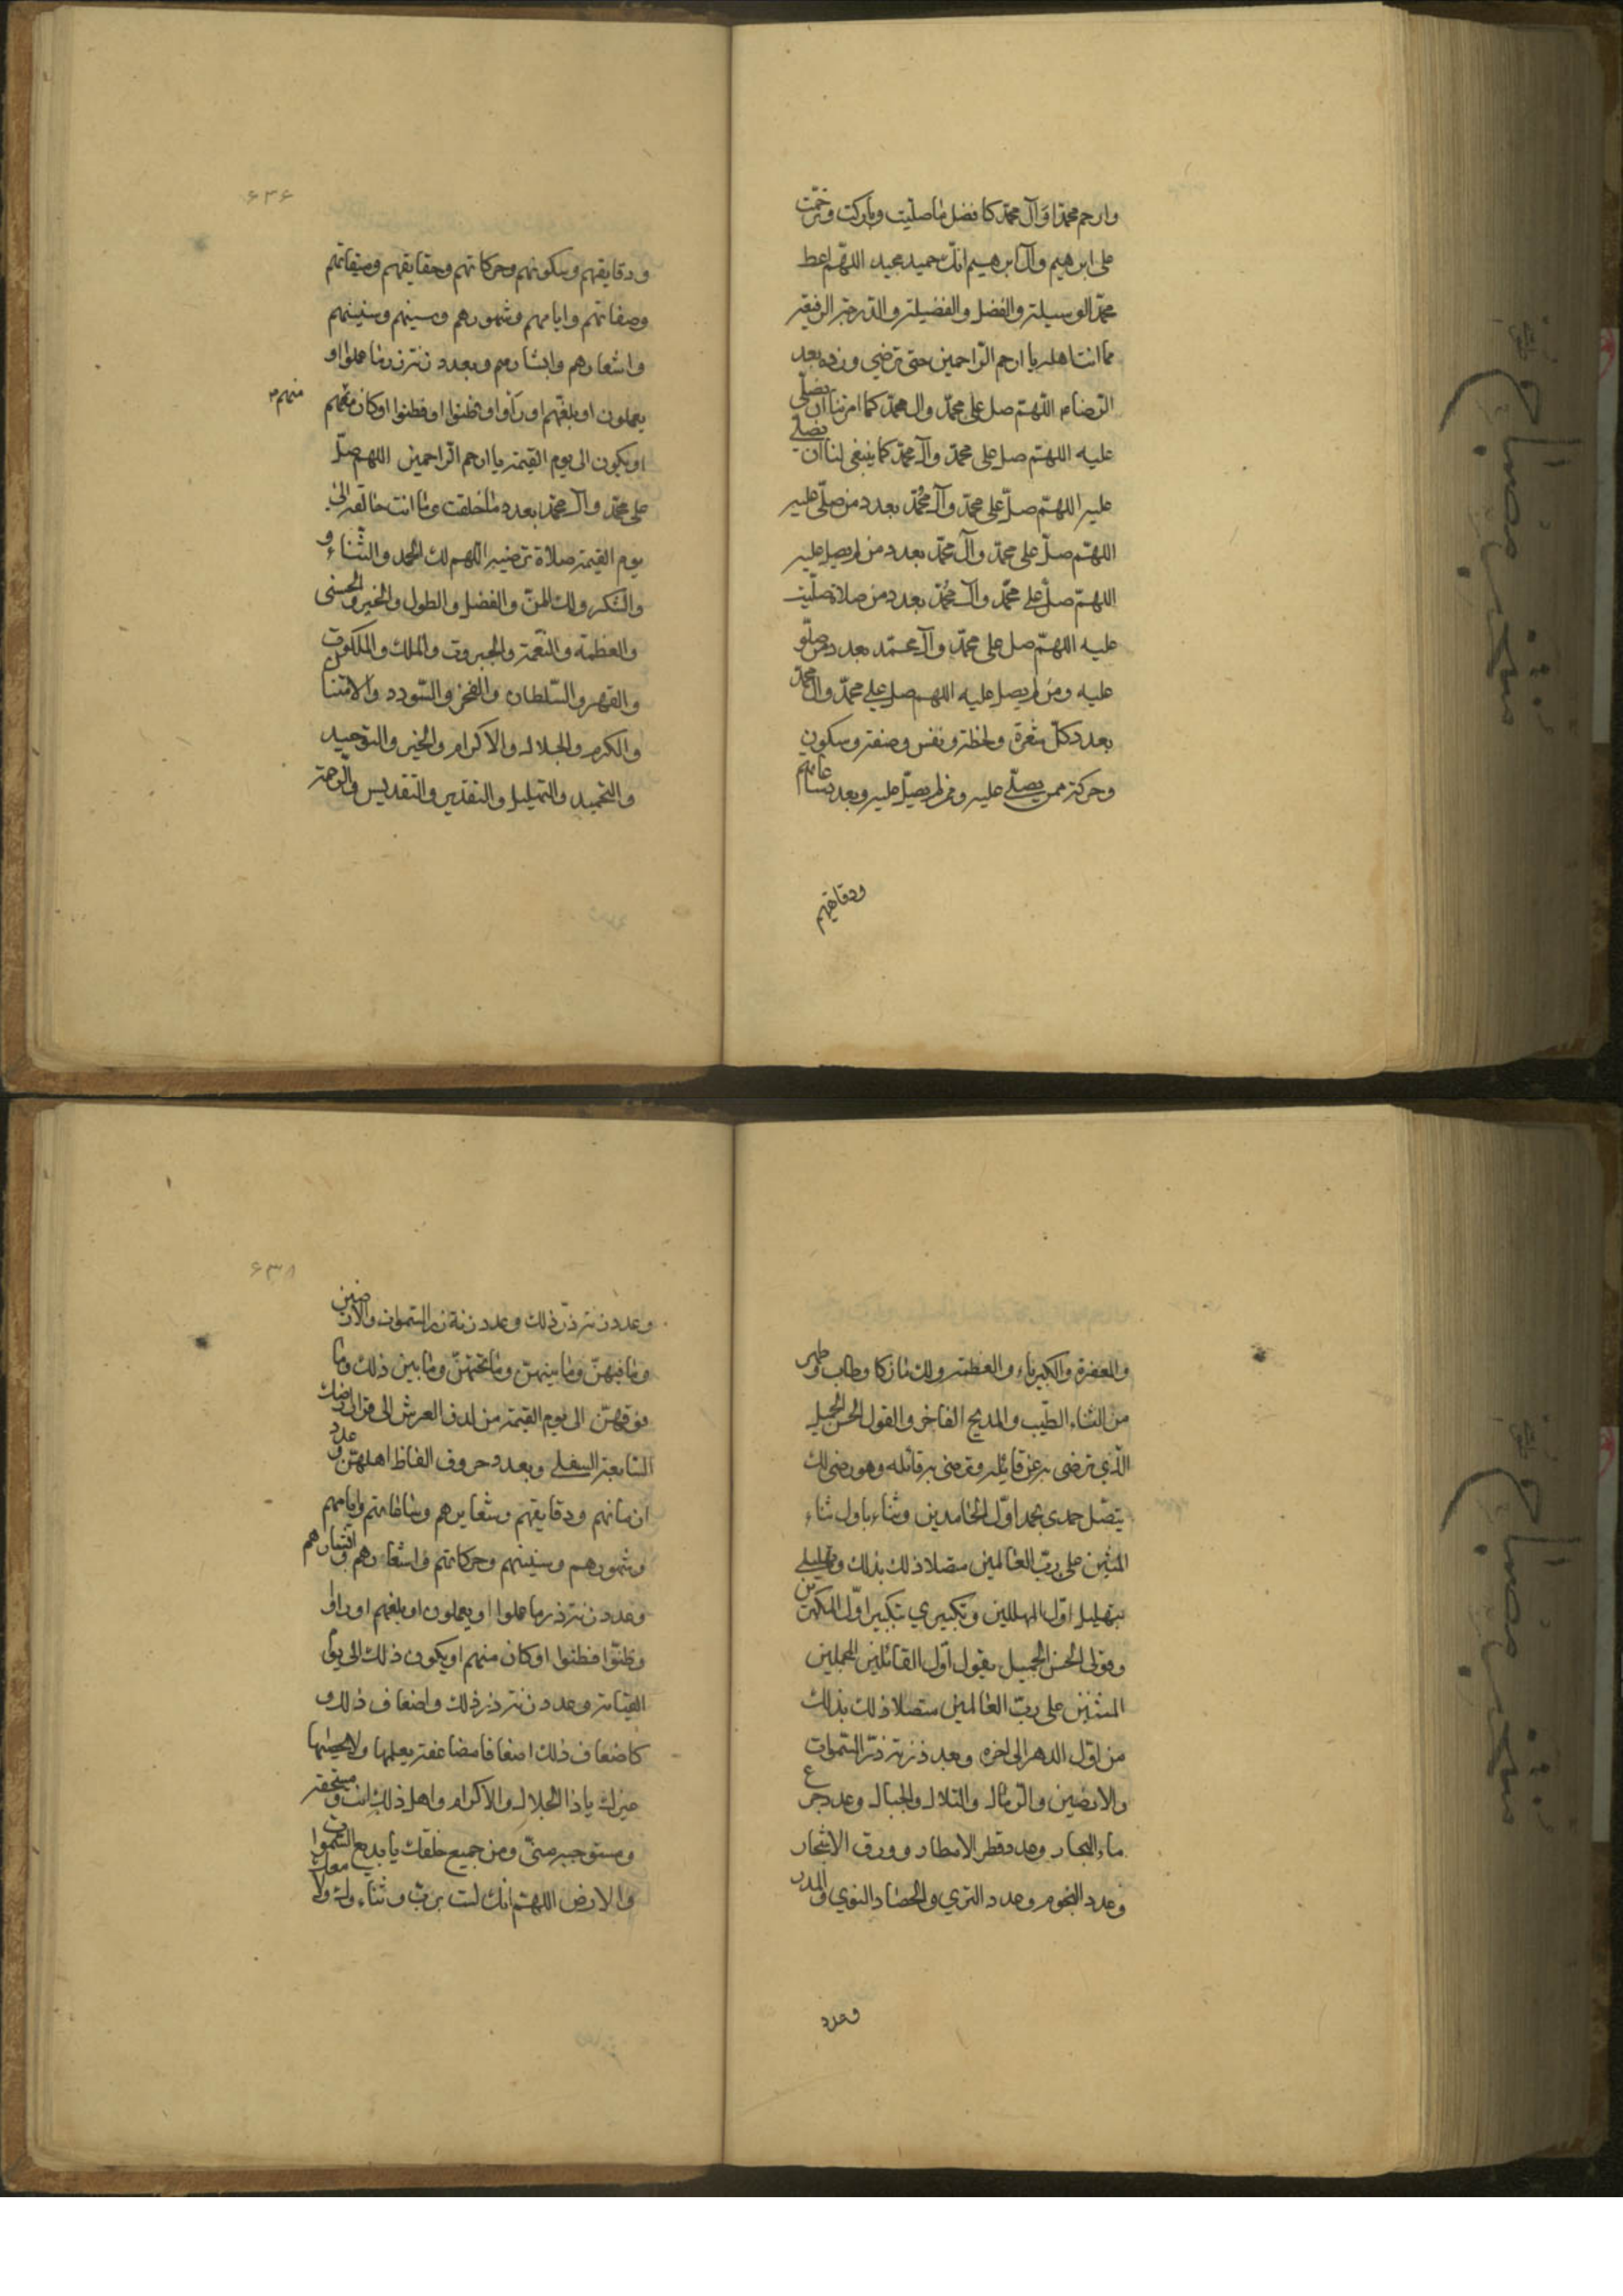 وارحم محمدا وآل محمد كافضل ما صليت وباركت وترحمت
على ابرهيم وآل ابرهيم انك حميد مجيد اللهم اعط
محمد الوسيلة والفضل والفضيلة والدرجة الرفيعة
مما انت اهله يا ارحم الراحمين حتى ترضي وزده بعد
الرضاء اللهم صل على محمد وال محمد كما امرتنا ان نصلي
عليه اللهم صل على محمد وآل محمد كما ينبغي لنا ان نصلي
عليه اللهم صل على محمد وآل محمد بعدد من صلى عليه
اللهم صل على محمد وآل محمد بعدد من لم يصل عليه
اللهم صل على محمد وآل محمد بعدد من صلاة صليت
عليه اللهم صل على محمد وآل محمد بعدد من صلو
عليه ومن لم يصل عليه اللهم صل على محمد وآل محمد
بعدد كل شعرة ولحظة ونفس وصفة وسكون
وحركة ممن يصلي عليه ومن لم يصل عليه وبعدد ساعاتهم
ودقايقهم
۶۳۶
ودقايقهم وسكونهم وحركاتهم وحقايقهم وميقاتهم
وصفاتهم وايامهم وشهورهم وسنينهم
واشعارهم وابشارهم وبعدد زنة ذر ما عملوا او
يعملون او بلغهم او رأوا او ظنوا او فطنوا او كان منهم
منهم
او يكون الى يوم القيمة يا ارحم الراحمين اللهم صل
على محمد وآل محمد بعدد ما خلقت وما انت خالقه الى
يوم القيمة صلاة ترضيه اللهم لك الحمد والثناء و
والشكر ولك المن والفضل والطول والخير والحسنى
والعظمة والنعمة والجبروت والملك والملكوت
والقهر والسلطان والفخر والسودد والامتنان
والكرم والجلال والاكرام والخير والتوحيد
والتحميد والتهليل والتقديس والرحمة
والمغفرة والكبرياء والعظمة ولك ما زكا وطاب وطهر
من الثناء الطيب والمديح الفاخر والقول الحسن الجميل
الذي ترضى به عن قايله وترضى به قائله وهو رضى لك
يتصل حمدى بحمد اول الحامدين وثناء باول ثناء
المثنين على رب العالمين متصلا ذلك بذلك وتهليلي
بتهليل اول المهللين وتكبيري بتكبير اول المكبرين
وقولى الحسن الجميل بقول اول القائلين المجملين
المثنين على رب العالمين متصلا ذلك بذلك
من اول الدهر الى اخره وبعدد زنة ذر السموات
والارضين والرمال والتلال والجبال وعدد جرع
ماء البحار وعدد قطر الامطار وورق الاشجار
وعدد النجوم وعدد الثري والحصا والنوي والمدر
وعدد
۶۳۸
وعدد زنة ذر ذلك وعدد زنة ذر السموات والارضين
وما فيهن وما بينهن وما تحتهن وما بين ذلك وما
فوقهن الى يوم القيمة من لدن العرش الى قرار ارضك
السابعة السفلي وبعدد حروف الفاظ اهلهن وعدد
ازمانهم ودقايقهم وشعايرهم وساعاتهم وايامهم
وشهورهم وسنينهم وحركاتهم واشعارهم وابشارهم
وعدد زنة ذر ما عملوا او يعملون او بلغهم او راوا
وظنوا فطنوا او كان منهم او يكون ذلك الى يوم
القيامة وعدد زنة ذر ذلك واضعاف ذلك و
كاضعاف ذلك اضعافا مضاعفة يعلمها ولا يحصيها
غيرك يا ذا الجلال والاكرام واهل ذلك انت ومستحقه
ومستوجبه منى ومن جميع خلقك يا بديع السموات
والارض اللهم انك لست برب وثناء ولا معك